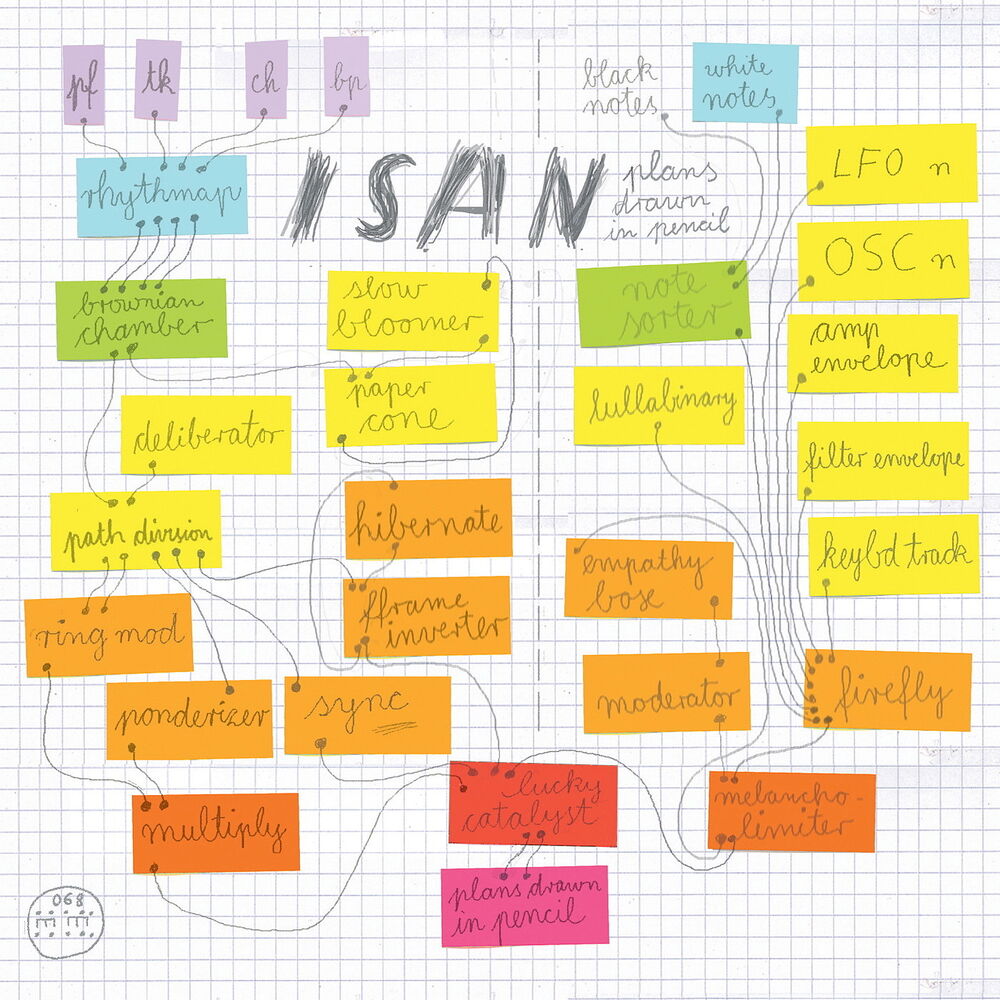 pf
tk
ch
bp
black
notes
white
notes
LFO n
rhythmap
ISAN
plans
drawn
in pencil
OSC n
brownian
chamber
slow
bloomer
note
sorter
amp
envelope
paper
cone
lullabinary
deliberator
filter envelope
path division
hibernate
empathy
bose
keybd track
ring mod
fframe
inverter
moderator
firefly
ponderizer
sync
multiply
lucky
catalyst
melancho-
limiter
plans drawn
in pencil
068